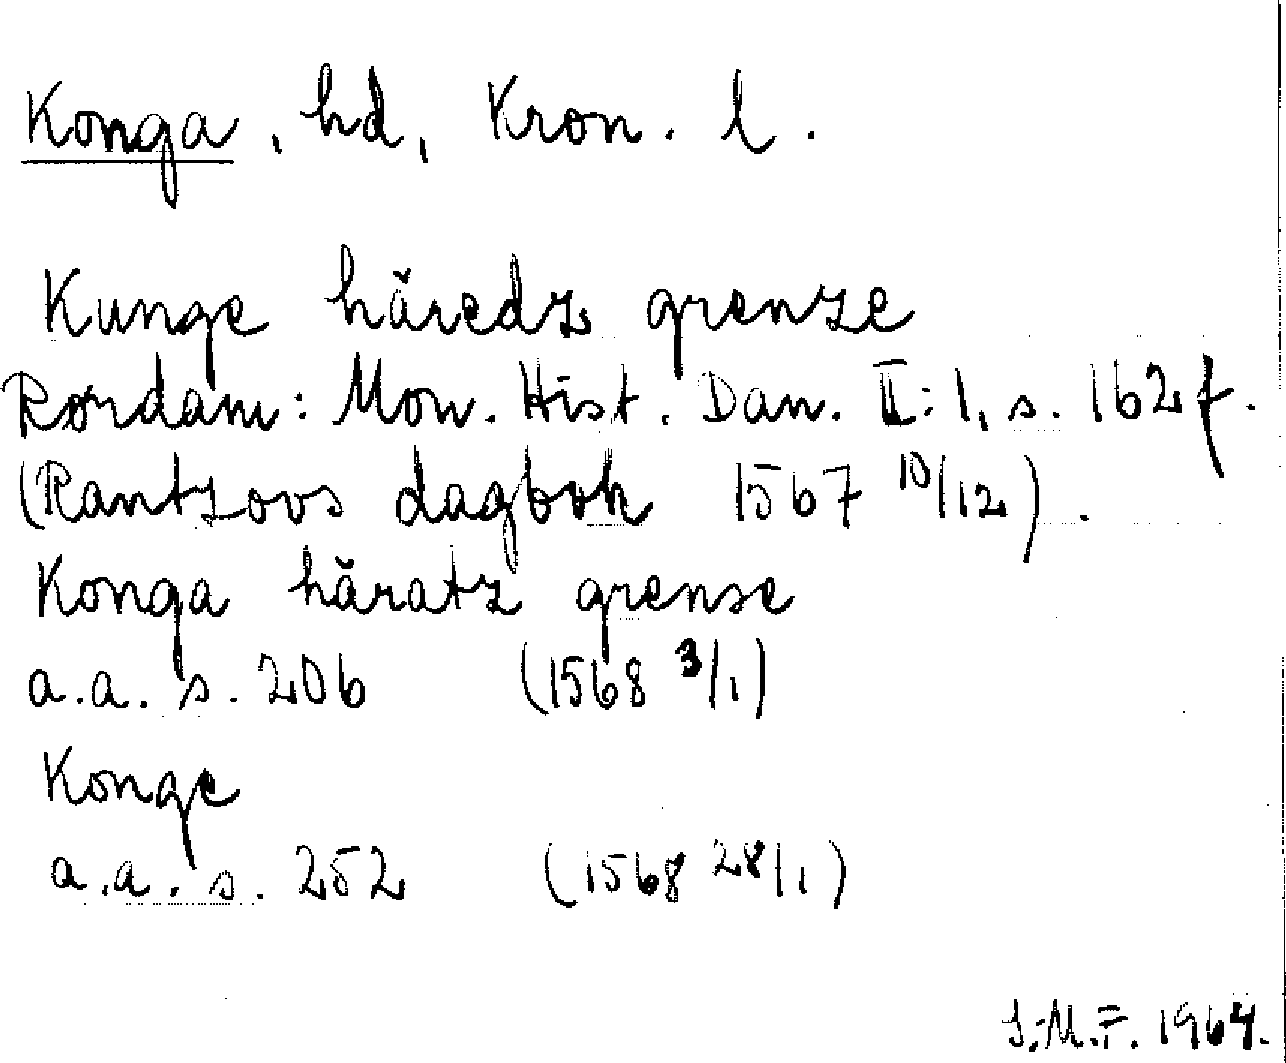 Konga, hd, Kron. l.
Kunge hăredz grenze
Rørdam: Mon. Hist. Dan. II:1, s. 162 f.
(Rantzovs dagbok 1567 10/12).
Konga hăratz grense
a.a. s. 206 (1568 3/1)
Konge
a.a. s. 252 (1568 28/1)
S.M.F. 1964.